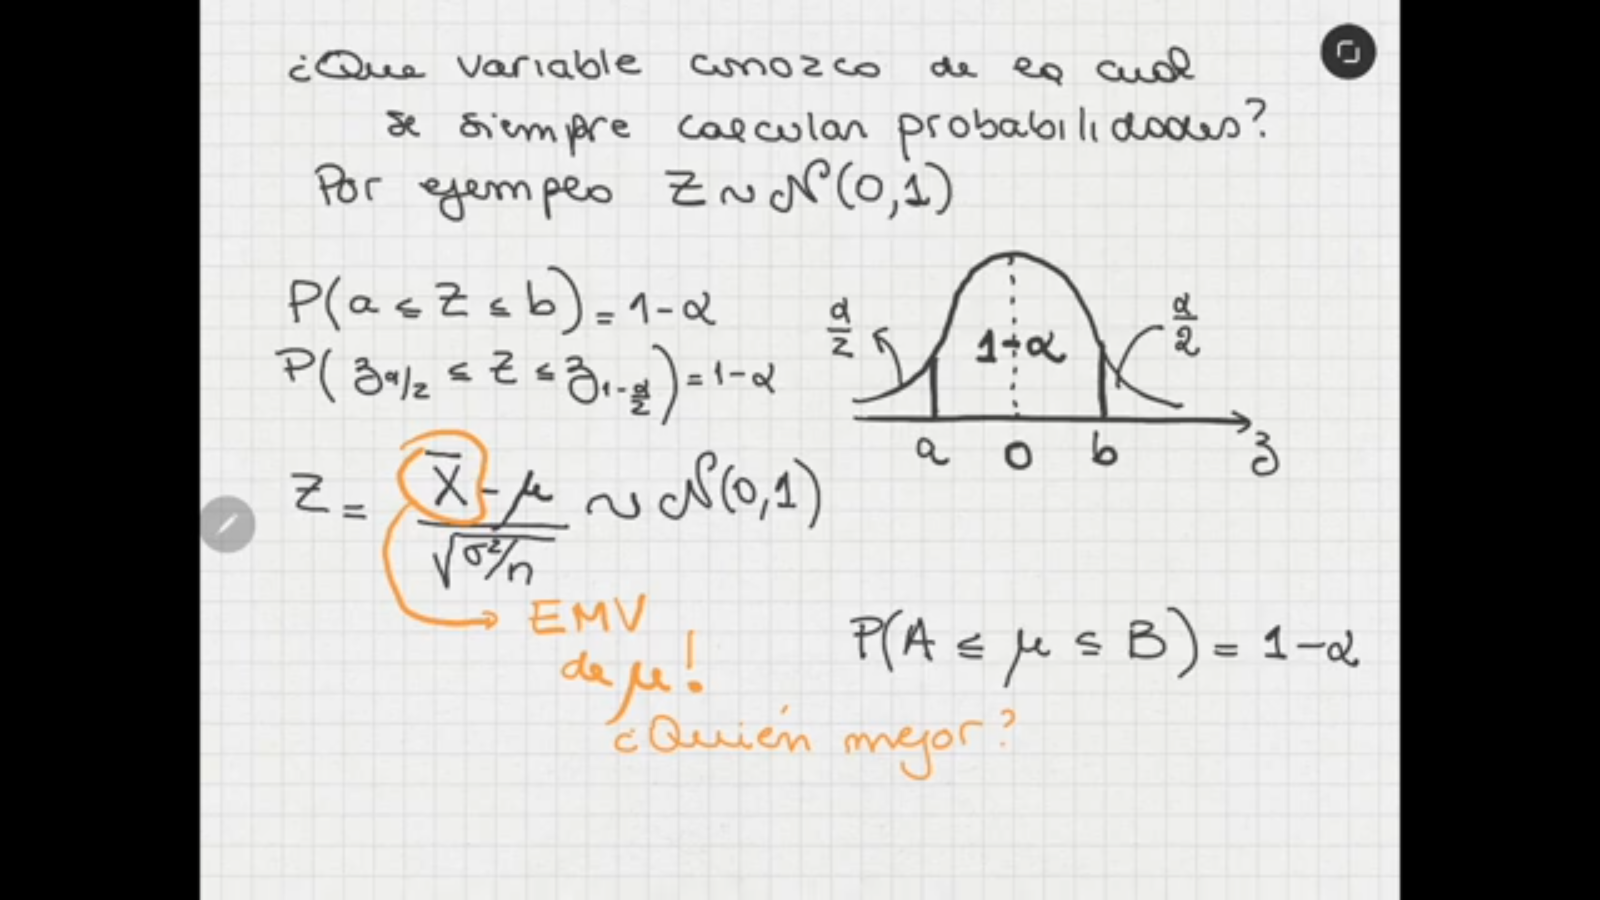 ¿Que variable conozco de la cual
se siempre calcular probabilidades?
Por ejemplo Z ~ N(0,1)
P(a ≤ Z ≤ b) = 1-α
P(z_{α/2} ≤ Z ≤ z_{1-α/2}) = 1-α
α/2
1-α
α/2
a 0 b z
Z = (X̄ - μ) / √(σ²/n) ~ N(0,1)
EMV
de μ!
¿Quién mejor?
P(A ≤ μ ≤ B) = 1-α